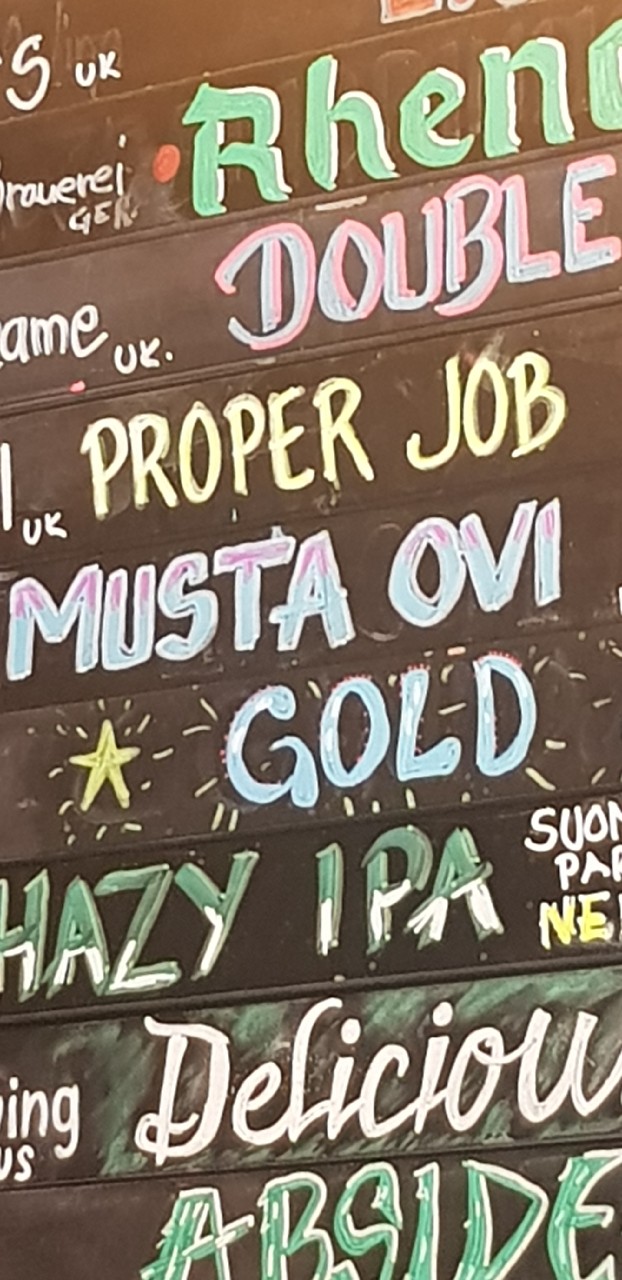 S UK
Brauerei GER. Rheno
ame UK. DOUBLE
UK PROPER JOB
MUSTA OVI
GOLD
HAZY IPA SUOM
PAR
NE
ing US Deliciou
ABSIDE